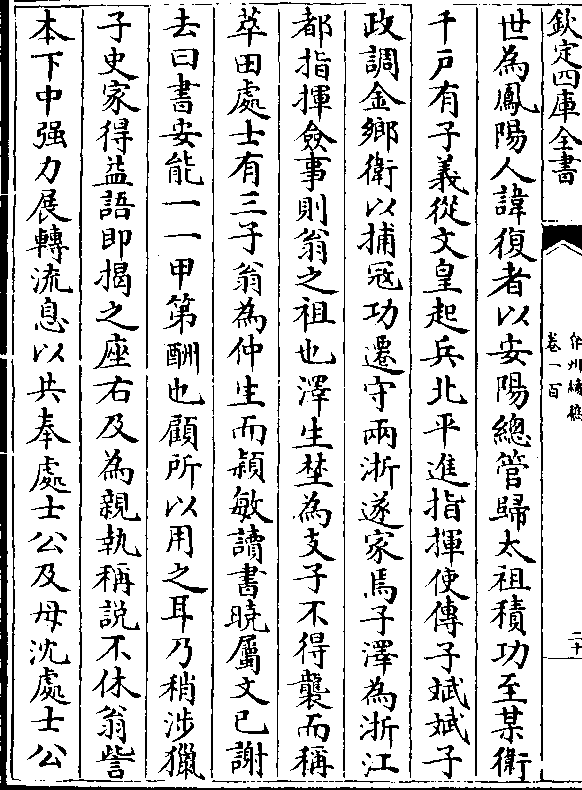 欽定四庫全書
弇州續稿
卷一百
二十
世為鳳陽人諱復者以安陽總管歸太祖積功至某衛
千户有子義從文皇起兵北平進指揮使傳子斌斌子
政調金鄉衛以捕冦功遷守兩浙遂家焉子澤為浙江
都指揮僉事則翁之祖也澤生埜為支子不得襲而稱
萃田處士有三子翁為仲生而頴敏讀書曉屬文已謝
去曰書安能一一甲第酬也顧所以用之耳乃稍涉獵
子史家得益語即揭之座右及為親執稱説不休翁訾
本下中强力展轉流息以共奉處士公及母沈處士公